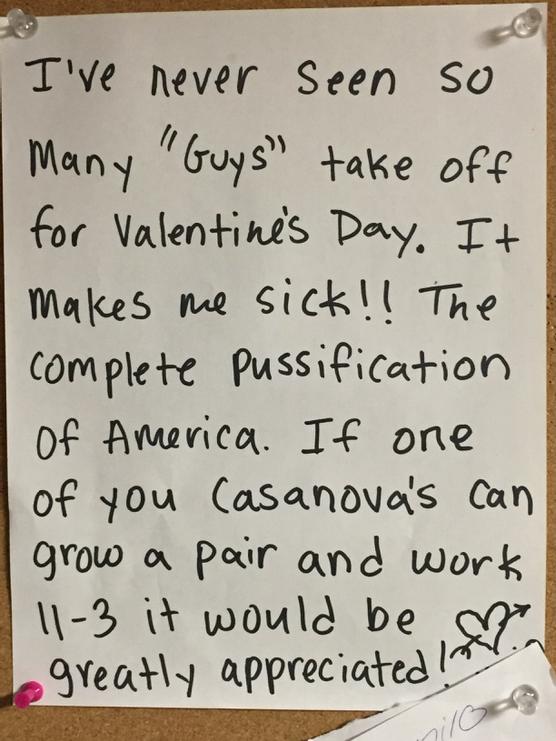 I've never seen so
many "Guys" take off
for Valentine's Day. It
makes me sick!! The
complete pussification
of America. If one
of you Casanova's can
grow a pair and work
11-3 it would be
greatly appreciated!